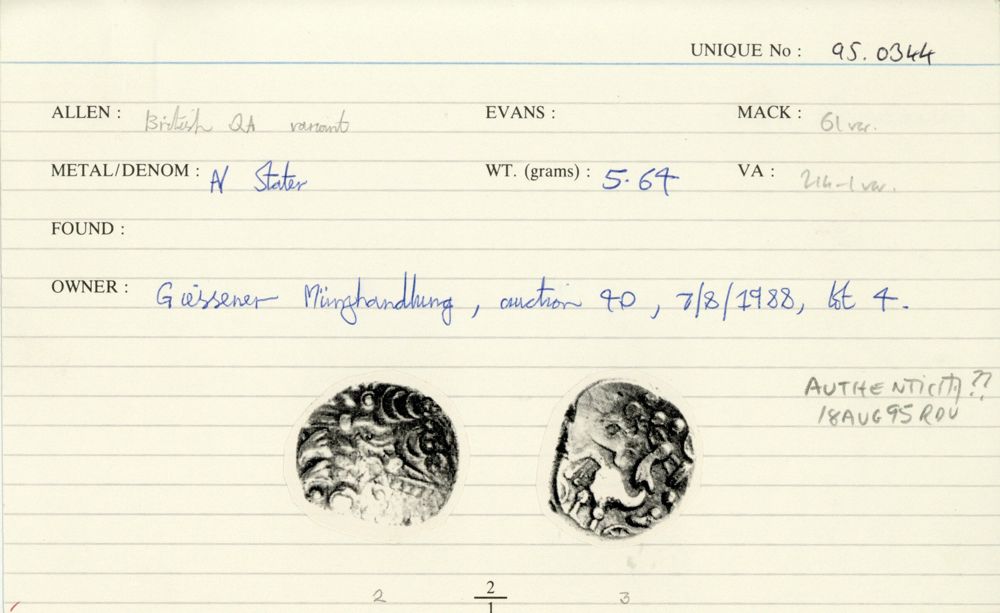 UNIQUE No : 95.0344
ALLEN : British QA variant EVANS : MACK : 61 var.
METAL/DENOM : AV Stater WT. (grams) : 5.64 VA : 214-1 var.
FOUND :
OWNER : Giessener Münzhandlung, auction 40, 7/8/1988, lot 4.
AUTHENTICITY ??
18 AUG 95 RDV
2 2/1 3